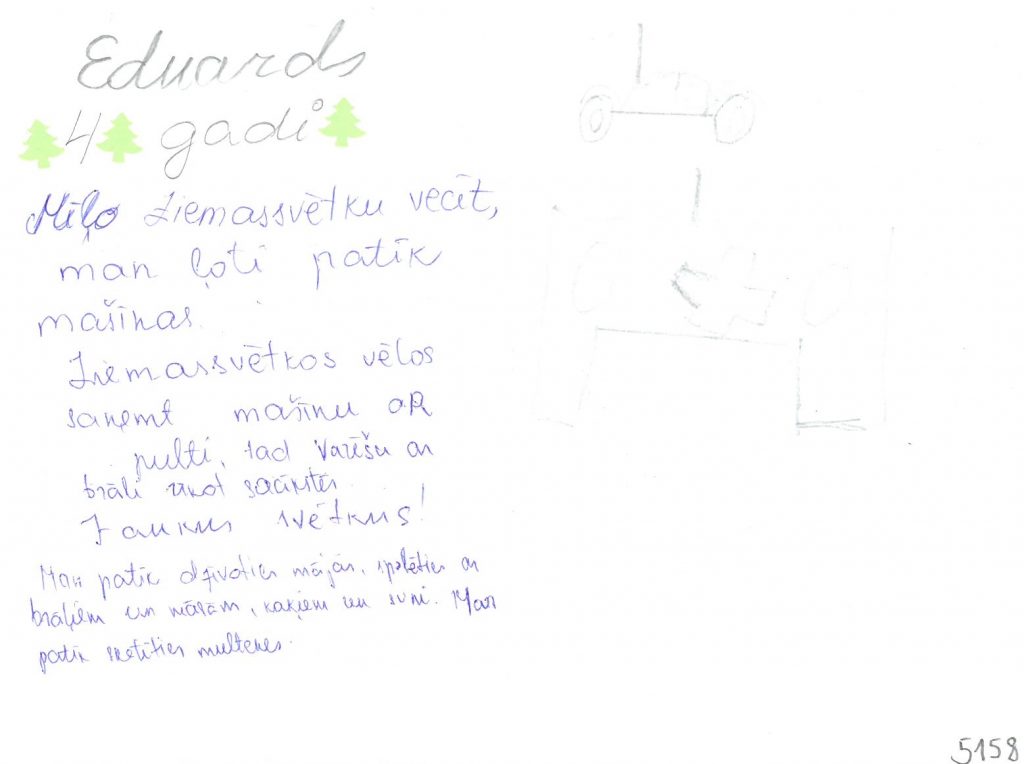 Eduards
4 gadi
Mīļo Ziemassvētku vecīt,
man ļoti patīk
mašīnas.
Ziemassvētkos vēlos
saņemt mašīnu aR
pulti, tad varēšu ar
brāli rīkot sacīkstes.
Jaukus svētkus!
Man patīk dzīvoties mājās, spēlēties ar
brāļiem un māsām, kaķiem un suni. Man
patīk skatīties multenes.
5158